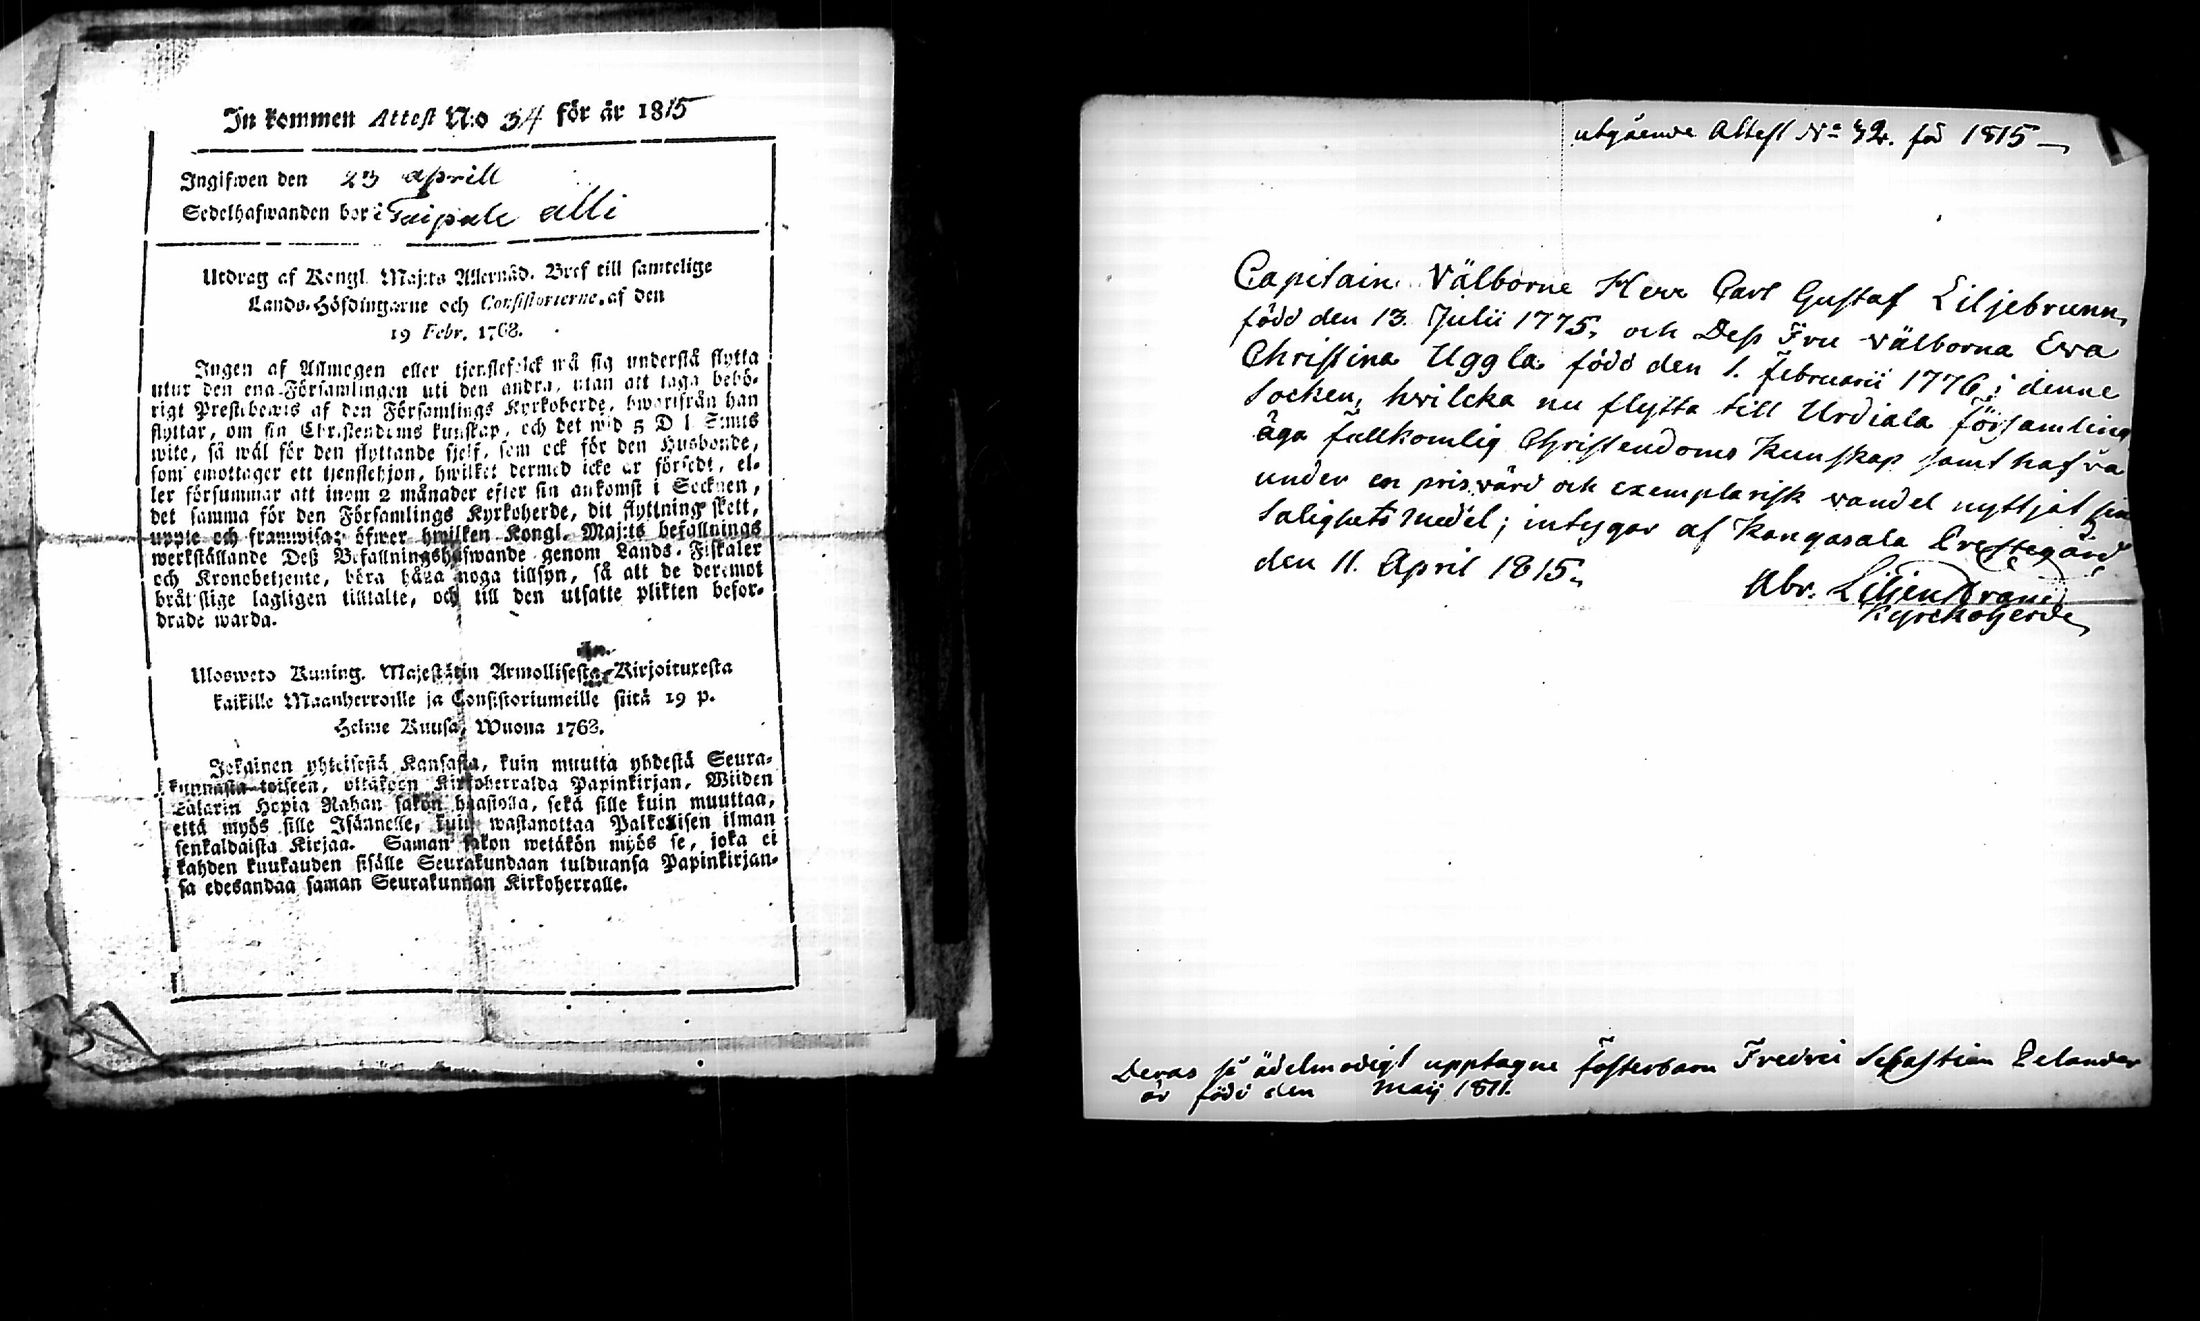 In kommen Attest N:o 34 för år 1815
Ingifwen den 23 aprill
Sedelhafwanden bor i Taipale alli
Utdrag af Kongl. Maj:ts Allernåd. Bref till samtelige
Lands-Höfdingarne och Consistorierne, af den
19 Febr. 1768.
Ingen af Allmogen eller tjenstefolck må sig understå flytta
utur den ena Församlingen uti den andra, utan att taga behö-
rigt Prestebewis af den Församlings Kyrkoherde, hwarifrån han
flyttar, om sin Christendoms kunskap, och det wid 5 D l S:mts
wite, så wäl för den flyttande sjelf, som ock för den Husbonde,
som emottager ett tjenstehjon, hwilket dermed icke är försedt, el-
ler försummar att inom 2 månader efter sin ankomst i Socknen,
det samma för den Församlings Kyrkoherde, dit flyttning skett,
uppte och framwisa; öfwer hwilken Kongl. Maj:ts befallnings
werkställande Deß Befallningshafwande genom Lands-Fiskaler
och Kronobetjente, böra hålla noga tillsyn, så att de deremot
bråtslige lagligen tilltalte, och till den utsatte plikten befor-
drade warda.
Ulosweto Kuning. Majestätin Armollisesta Kirjoituxesta
kaikille Maanherroille ja Consistoriumeille siitä 19 p.
Helme Kuusa, Wuona 1768.
Jokainen yhteisestä Kansasta, kuin muutta yhdestä Seura-
kunnasta toiseen, ottakoon Kirkoherralda Papinkirjan, Wiiden
Talarin Hopia Rahan sakon haastolla, sekä sille kuin muuttaa,
että myös sille Isännelle, kuin wastanottaa Palkollisen ilman
senkaldaista Kirjaa. Saman sakon wetäkön myös se, joka ei
kahden kuukauden sisälle Seurakundaan tulduansa Papinkirjan-
sa edesandaa saman Seurakunnan Kirkoherralle.
utgående Attest No 42. för 1815
Capitain Välborne Herr Carl Gustaf Liljebrunn,
född den 13. Julii 1775, och Dess Fru välborna Eva
Christina Uggla född den 1. Februarii 1776, i denne
Socken, hvilcka nu flytta till Urdiala församling
äga fullkomlig Christendoms Kunskap samt hafva
under en prisvärd och exemplarisk vandel nyttjat sin
Salighets medel; intygar af Kangasala Prestegård
den 11. April 1815.
Abr. Liljenstrand
Kyrckoherde
Deras så ädelmodigt upptagne fosterbarn Fredric Sebastian Zelander
är född den Maij 1811.